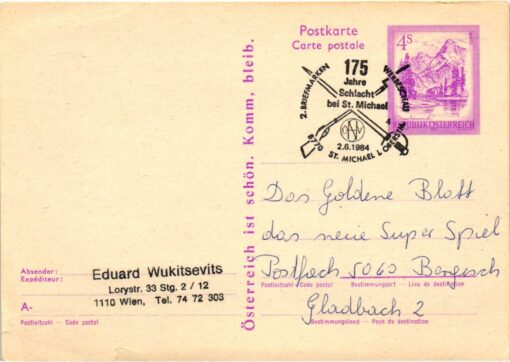 Postkarte
Carte postale
4 S
REPUBLIK ÖSTERREICH
2. BRIEFMARKEN WERBESCHAU
175
Jahre
Schlacht
bei St. Michael
2.6.1984
8770 ST. MICHAEL I. OBERSTM.
Österreich ist schön. Komm, bleib.
Das Goldene Blatt
das neue Super Spiel
Postfach 5060 Bergisch
Postleitzahl - Code postal Bestimmungsort - Lieu de destination
Gladbach 2
Bestimmungsland - Pays de destination
Absender:
Expéditeur:
Eduard Wukitsevits
Lorystr. 33 Stg. 2 / 12
1110 Wien, Tel. 74 72 303
A-
Postleitzahl - Code postal